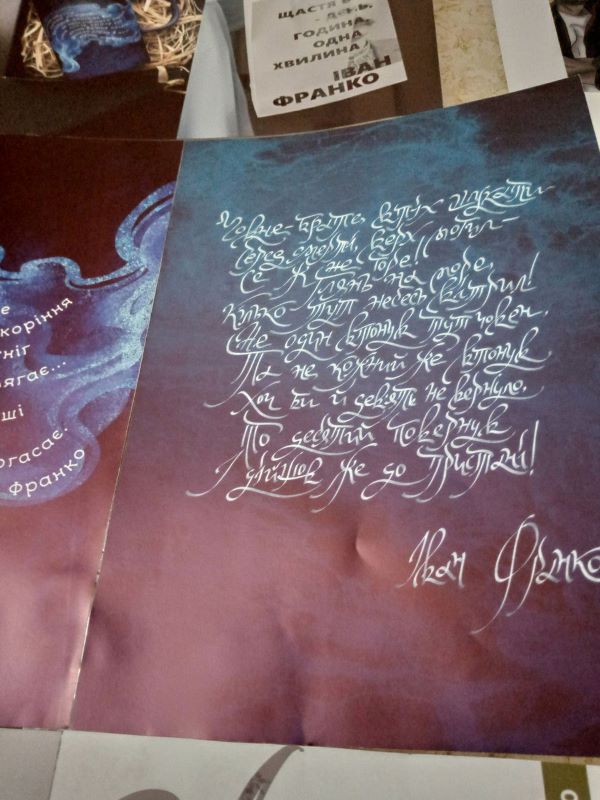 ЩАСТЯ В
- ДЕНЬ,
ГОДИНА,
ОДНА
ХВИЛИНА
ІВАН
ФРАНКО
е
коріння
ніг
ягає...
ші
огасає.
Франко
Човне-брате, втіх шукати
Серед смерти, верх могил-
Се ж не горе! Глянь на море,
Кілько тут несесь вітрил!
Не один втонув тут човен,
Та не кожний же втонув,
Хоч би й девять не вернуло,
То десятий повернув
І дійшов же до пристані!
Іван Франко